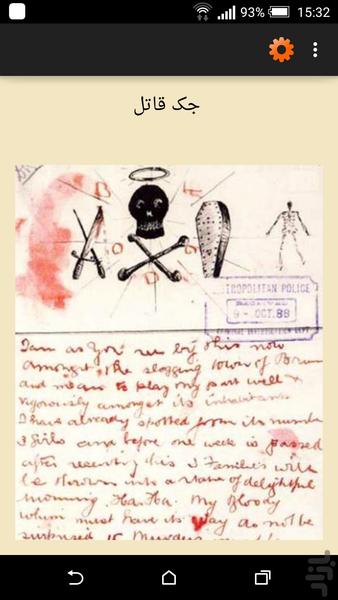 93% 15:32
جک قاتل
TROPOLITAN POLICE
RECEIVED
9 - OCT. 88
CRIMINAL INVESTIGATION DEPT
I am as you see by this now
amongst the slogging town of
and means to play my part well &
vigorously amongst its inhabitants
I have already spotted from its
3 girls and before one week is passed
after receiving this 3 Families will
be thrown into a state of delightful
mourning. Ha. Ha. My bloody
whim must have its way do not be
surprised 15 Murders